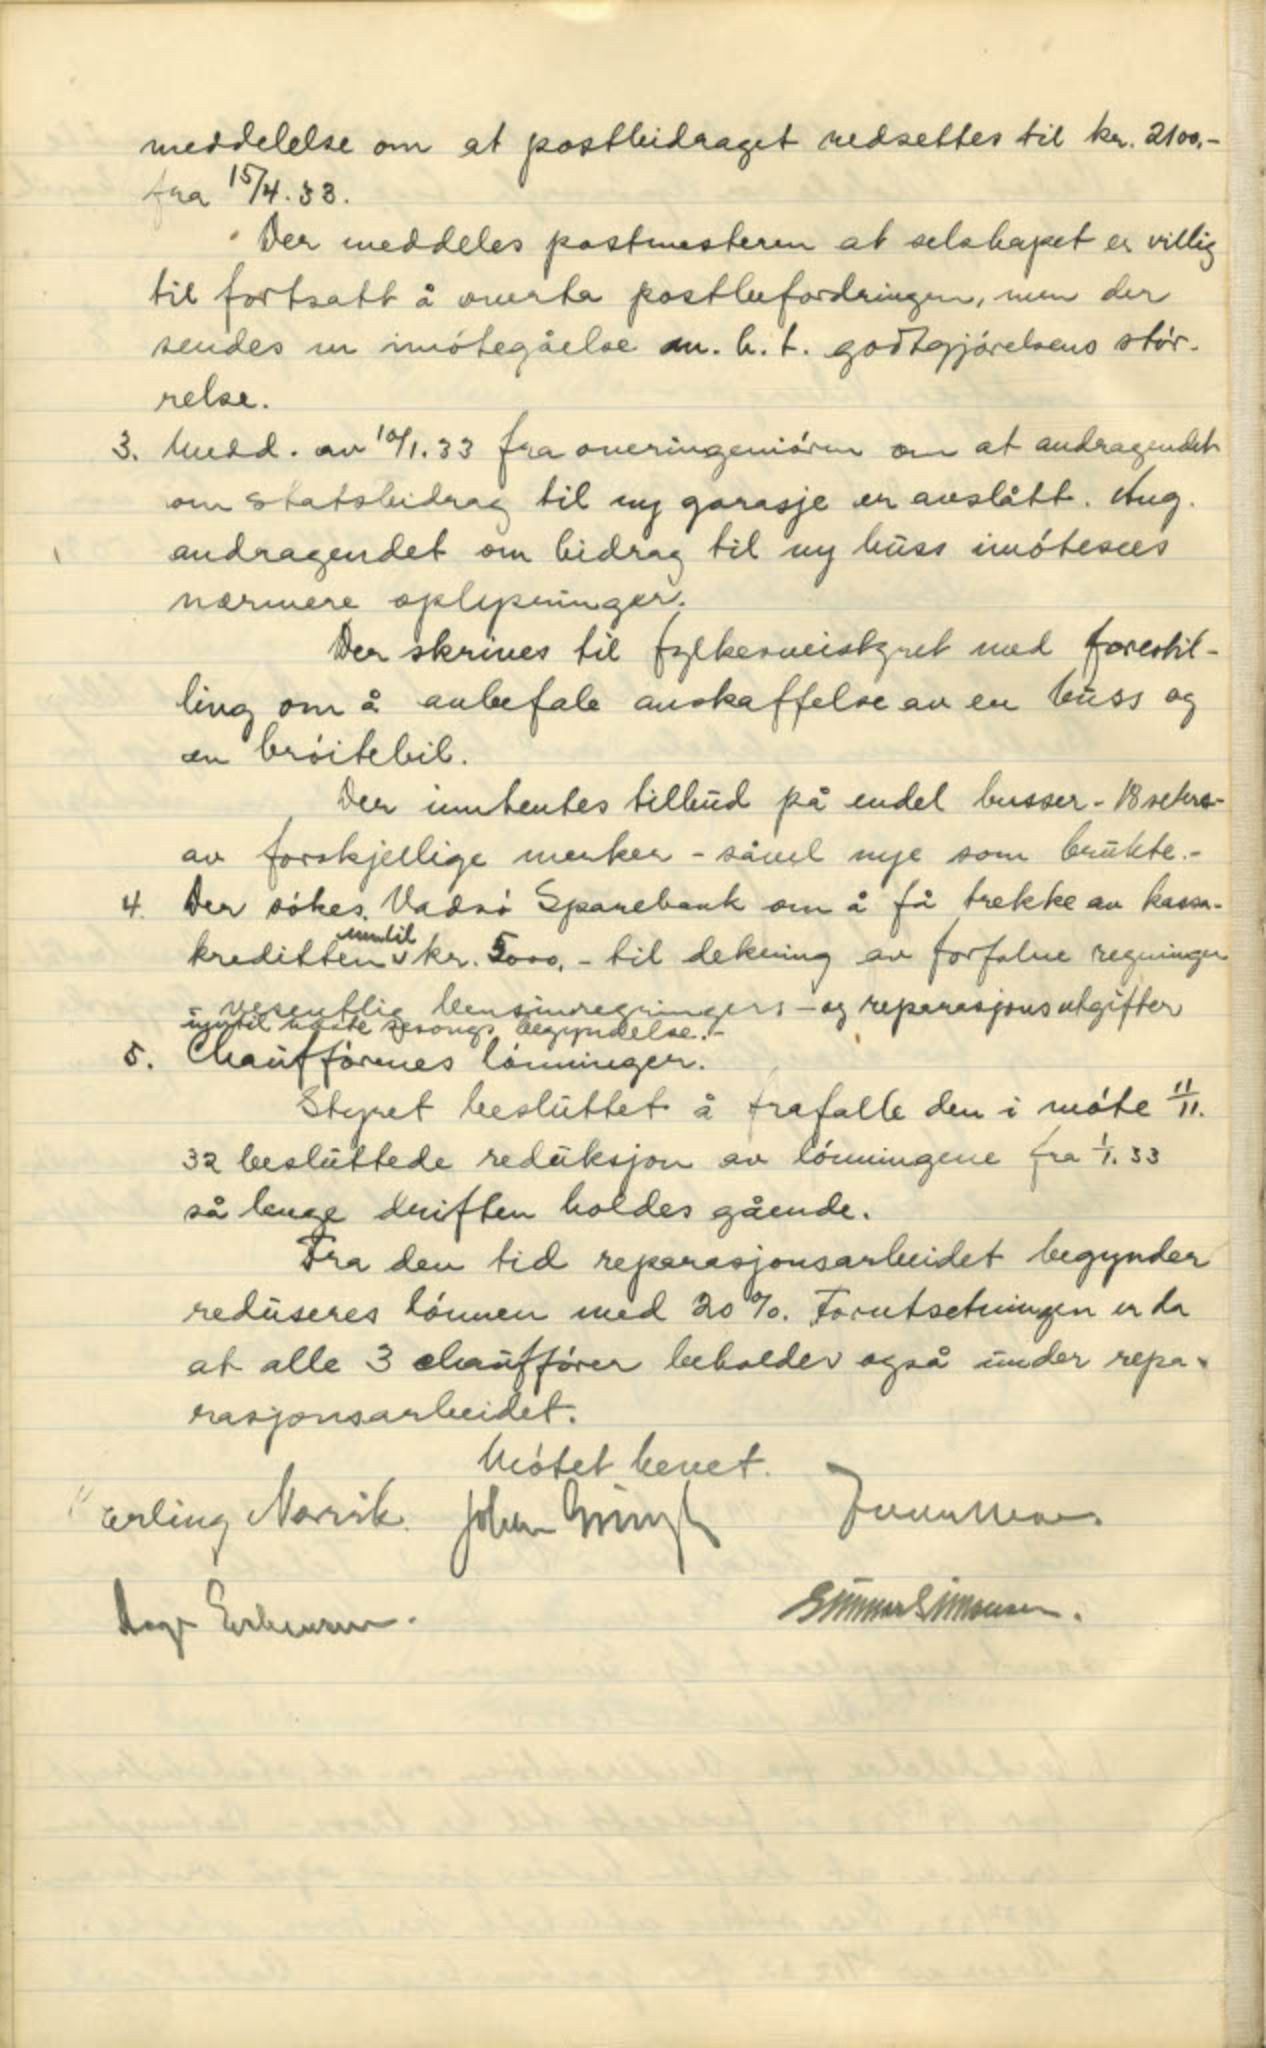 meddelelse om at postbidraget nedsettes til kr. 2100,-
fra 15/4.33.
Der meddeles postmesteren at selskapet er villig
til fortsatt å overta postbefordringen, men der
sendes en imótegåelse m.h.t. godtgjórelsens stór-
relse.
3. Medd. av 10/1.33 fra overingeniören om at andragendet
om statsbidrag til ny garasje er avslått. Ang.
andragendet om bidrag til ny buss imótesees
nærmere oplysninger.
Der skrives til fylkesveistyret med forestil-
ling om å anbefale anskaffelse av en buss og
en bróitebil.
Der innhentes tilbud på endel busser - 18 seters-
av forskjellige merker - såvel nye som brukte.-
4. Der sókes Vadsó Sparebank om å få trekke av kassa-
kreditten inntil kr. 5000,- til dekning av forfalne regninger
- vesentlig bensinregninger - og reparasjonsutgifter
inntil næste sesongs begyndelse.-
5. Chauffórenes lónninger.
Styret besluttet å frafalle den i móte 11/11.
32 besluttede reduksjon av lónningene fra 1/1.33
så lenge driften holdes gående.
Fra den tid reparasjonsarbeidet begynder
reduseres lónnen med 20%. Forutsetningen er da
at alle 3 chauffórer beholdes også under repa-
rasjonsarbeidet.
Mótet hevet.
Erling Norvik. Johan
Gunnar Simonsen.